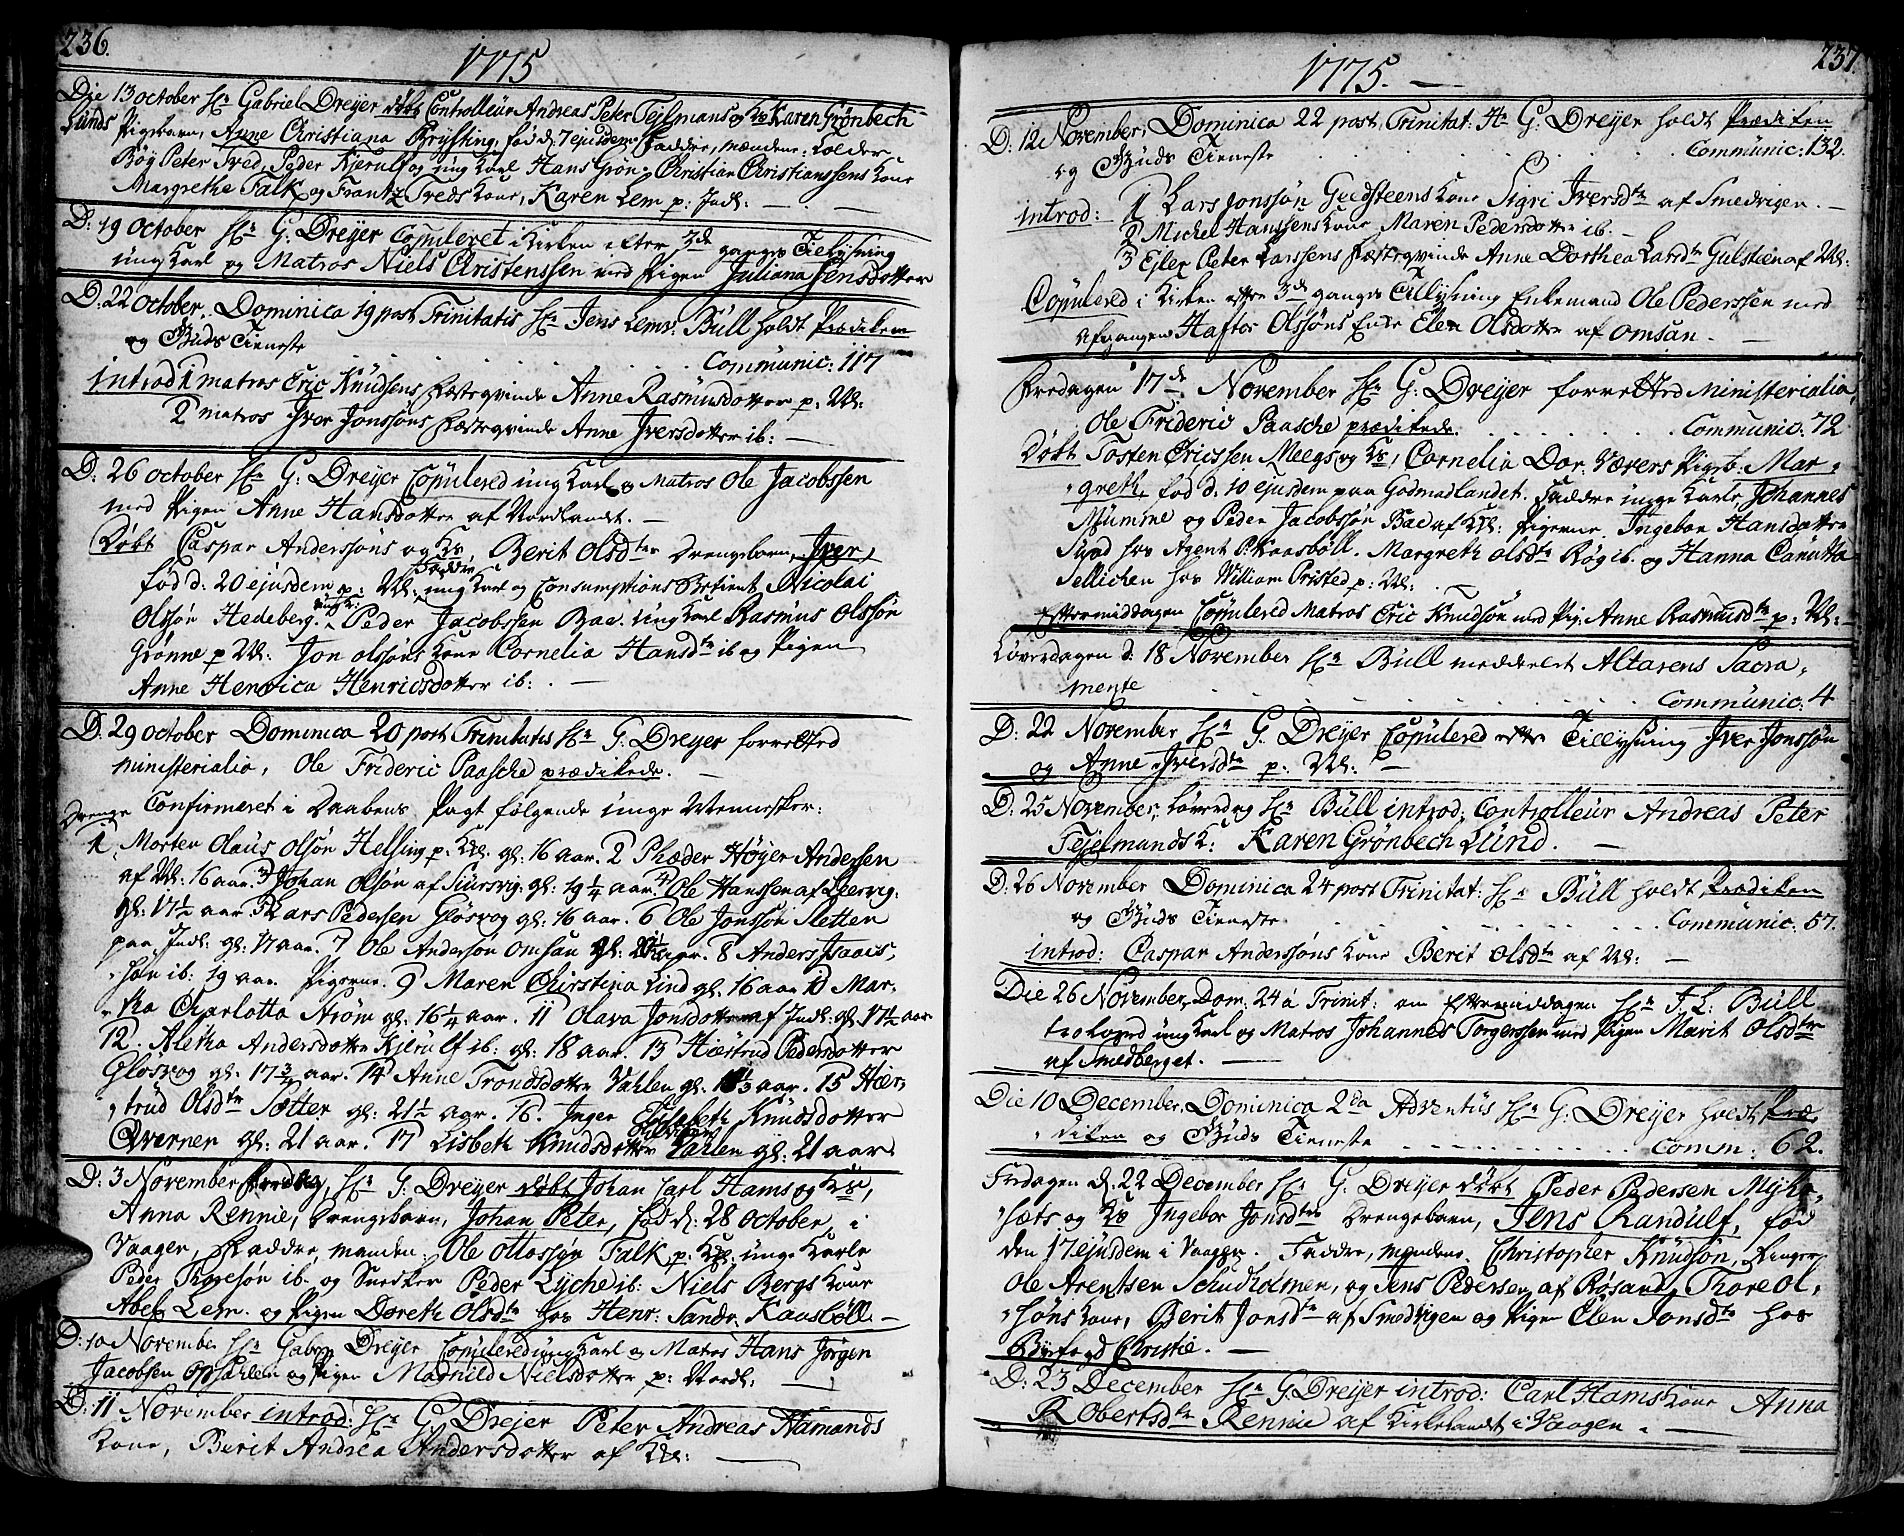 236.
1775
Die 13 october Hr. Gabriel Dreyer døbt Controlleur Andreas Peter Tejlmans og Ks Karen Grønbech
Lunds Pigebarn, Anne Christiana Brysting, fød d. 7 ejusdem. Faddre, mændene: Tolder
Røy Peter Tved, Peder Kjerulf og ung Karl Hans Grøn, Christian Christianssens Kone
Margrethe Falk og Frantz Tveds Kone, Karen Lem p: Indl: —
D: 19 October Hr. G: Dreyer Copuleret i Kirken efter 3de ganges Tillysning
ung Karl og Matros Niels Christenssen med Pigen Juliana Jensdotter
D: 22 October, Dominica 19 post Trinitatis Hr. Jens Lem: Büll holdt Prædiken
og Guds Tieneste . . . . Communic: 117
introd 1 matros Eric Knudsens Fæsteqvinde Anne Rasmusdotter p: Nl:
2 matros Iver Jonssøns Fæsteqvinde Anne Iversdotter ib: —
D: 26 October Hr. G: Dreyer Copulered ung Karl og Matros Ole Jacobssen
med Pigen Anne Hansdotter af Nordlandet. —
Døbt Caspar Anderssøns og Ks, Berit Olsdtr Drengebarn, Iver,
fød d. 20 ejusdem p: Nl: Faddre ung Karl og Consumptions Betient Nicolai
Olssøn Hedeberg. ung K: Peder Jacobssen Bae. ung Karl Rasmus Olssøn
Grønne p Nl. Jon olssøns Kone Cornelia Hansdtr ib og Pigen
Anne Henrica Henricsdotter ib: . —
D: 29 October Dominica 20 post Trinitatis Hr. G: Dreyer forretted
ministerialia, Ole Frideric Paasche prædikede. —
Confirmeret i Daabens Pagt følgende unge Mennesker:
Drenge
1. Morten Olaus Olsøn Helsing p: Kl: gl: 16 aar. 2 Phæder Høyer Andersen
af Nl: 16 aar. 3 Johan Olsøn af Siursvig: gl: 19 1/4 aar. 4 Ole Hanssen af Leervig:
gl: 17 1/2 aar. 5 Lars Pedersen Gløsvog gl: 16 aar. 6 Ole Jonssøn Sletten
paa Indl: gl: 17 aar. 7 Ole Andersøn Omsan gl: aar. 8 Anders Isaacs,
søn ib: 19 aar. Pigerne. 9 Maren Christina Lind gl. 16 aar 10 Mar,
tha Charlotta Strøm gl: 16 1/4 aar. 11 Olava Jonsdotter af Indl: gl: 17 1/2 aar
12. Aletha Andersdotter Kjerulf ib: gl: 18 aar. 13 Hiertrud Pedersdotter
Gløsvog gl: 17 3/4 aar. 14 Anne Trondsdotter Vahlen gl: aar. 15 Hier,
trud Olsdtr Sætter gl: 21 1/2 aar. 16. Inger Elisabeth Knudsdotter
Qvernen gl: 21 aar. 17 Lisbeth Knudsdotter gl: 21 aar
D: 3 November Fredag, Hr. G: Dreyer døbt Johan Carl Hams og Ks,
Anna Rennie, Drengebarn, Johan Peter, fød d: 28 October, i
Vaagen, Faddre, mænden: Ole Ottossøn Falk p: Kl: unge Karle
Peder Toresøn ib. og Snedker Peder Lyche ib: Niels Bergs Kone
Abel Lem. og Pigen Doreth Olsdtr hos Henr: Sandr. Kaasbøll —
D: 10 November Hr. Gabrp Dreyer Copulered ung Karl og Matros Hans Jørgen
Jacobsen Opsahlen og Pigen Magnild Nielsdotter p: Nordl: —
D: 11 November introd: Hr. G: Dreyer Peter Andreas Hamonds
Kone, Berit Andrea Andersdotter af Kl: —
237.
1775. —
D: 12 November, Dominica 22 post Trinitat: Hr. G: Dreyer holdt Prædiken
og Guds Tieneste . . . . Communic: 132.
introd: 1 Lars Jonssøn Guldsteens Kone Sigri Iversdtr af Smedvigen. —
2 Michel Hanssens Kone Maren Pedersdotter ib. —
3 Ejler Peter Larssens Fæsteqvinde Anne Dorthea Larsdtr Gulstien af Nl:
Copulered i Kirken efter 3de ganges Tillysning Enkemand Ole Pederssen med
afgangen Haftor Olssøns Enke Elen Olsdotter af Omsan. —
Fredagen 17de November Hr. G: Dreyer forretted Ministerialia,
Ole Frideric Paasche prædikede. . . . Communic. 72
Døbt Tosten Ericssen Meegs og Ks, Cornelia Dor. Vævers Pigeb: Mar,
greth, fød d. 10 ejusdem paa Godmadlandet. Faddre unge Karle, Johannes
Mümme og Peder Jacobssøn Bae af Kl: Pigerne, Ingebor Hansdotter
Syad hos Agent P. Kaasbøll. Margreth Olsdtr Røg ib. og Hanna Canutta
Sellichen hos William Pristed p: Nl:
Eftermiddagen Copulered Matros Eric Knudsøn med Pig: Anne Rasmusdtr p: Nl: —
Løverdagen d: 18 November Hr. Büll meddeelt Altarens Sacra,
mente . . . . Communic: 4
D: 22 November Hr. G. Dreyer Copulered efter Tillysning Iver Jonssøn
og Anne Iversdtr p: Nl: —
D: 25 November, Løverdag Hr. Büll introd: Controlleur Andreas Peter
Tejelmands K: Karen Grønbech Lund. —
D: 26 November Dominica 24 post Trinitat: Hr. Büll holdt Prædiken
og Guds Tieneste . . . . Communic: 57.
introd: Caspar Anderssøns Kone Berit Olsdtr af Nl: —
Die 26 November, Dom: 24 a Trinit: om Eftermiddagen Hr. J. L: Büll
troloved ung Karl og Matros Johannes Torgerssen med Pigen Marit Olsdtr
af Smedberget. —
Die 10 December, Dominica 2da Adventüs Hr. G: Dreyer holdt Præ,
diken og Guds Tieneste . . . . Comm: 62.
Fredagen d. 22 December Hr. G. Dreyer døbt Peder Pedersen Myhr,
sæts og Ks Ingebor Jonsdtrs Drengebarn, Jens Randulf, fød
den 17 ejusdem i Vaagen. Faddre, mændene, Christopher Knudson, Ringer
Ole Arentsen Schudholmen, og Jens Pedersen af Røsand, Tore Ol,
søns Kone, Berit Jonsdtr af Smedvigen og Pigen Elen Jonsdtr hos
Byefogd Christie. —
D: 23 December Hr. G. Dreyer introd: Carl Hams Kone Anna
Robertsdtr Rennie af Kirkelandet i Vaagen. —